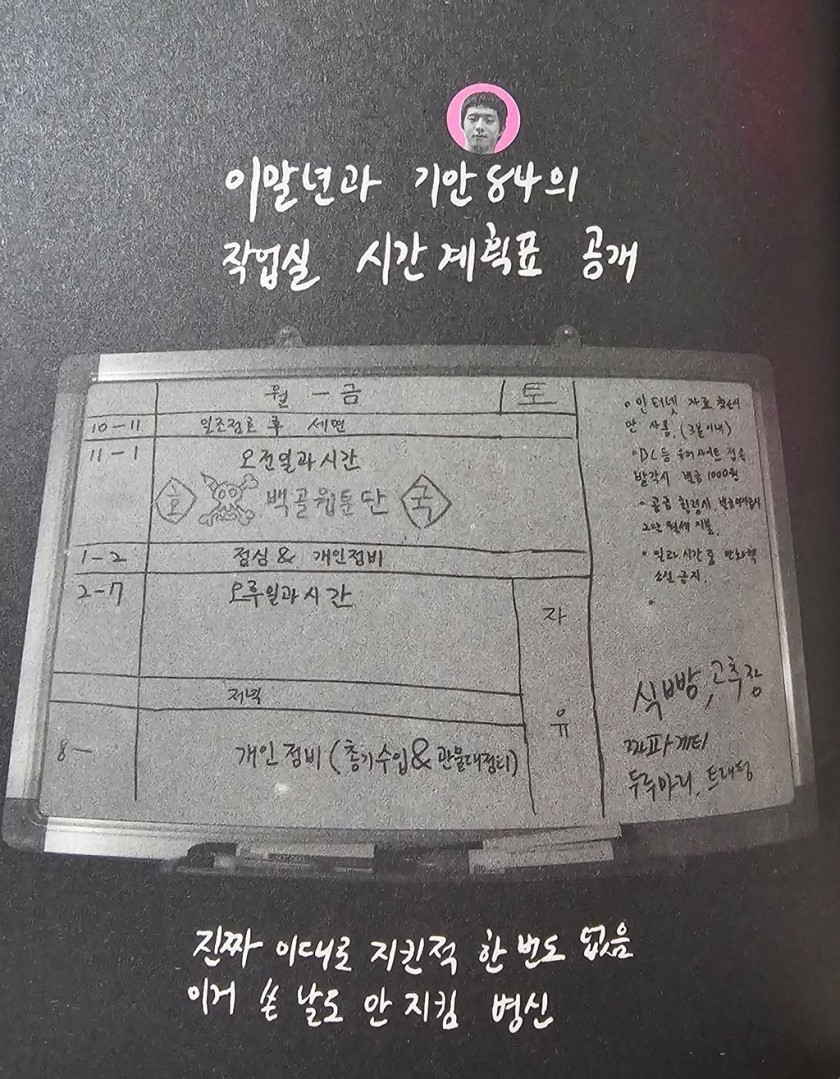 이말년과 기안84의
작업실 시간계획표 공개
월 - 금
토
10-11 일조점호 후 세면
11-1 오전일과시간
호 백골웹툰단 국
1-2 점심 & 개인정비
2-7 오후일과시간
자
유
저녁
8- 개인정비 (총기수입&관물대정비)
인터넷 자료 찾을시
만 사용. (3분이내)
DL등 유머사이트 접속
발각시 벌금 1000원
공금 횡령시,
2인 월세 지불.
일과시간 중 만화책
소설 금지.
식빵, 고추장
짜파게티
두루마리,
진짜 이대로 지킨적 한 번도 없음
이거 쓴 날도 안 지킴 병신